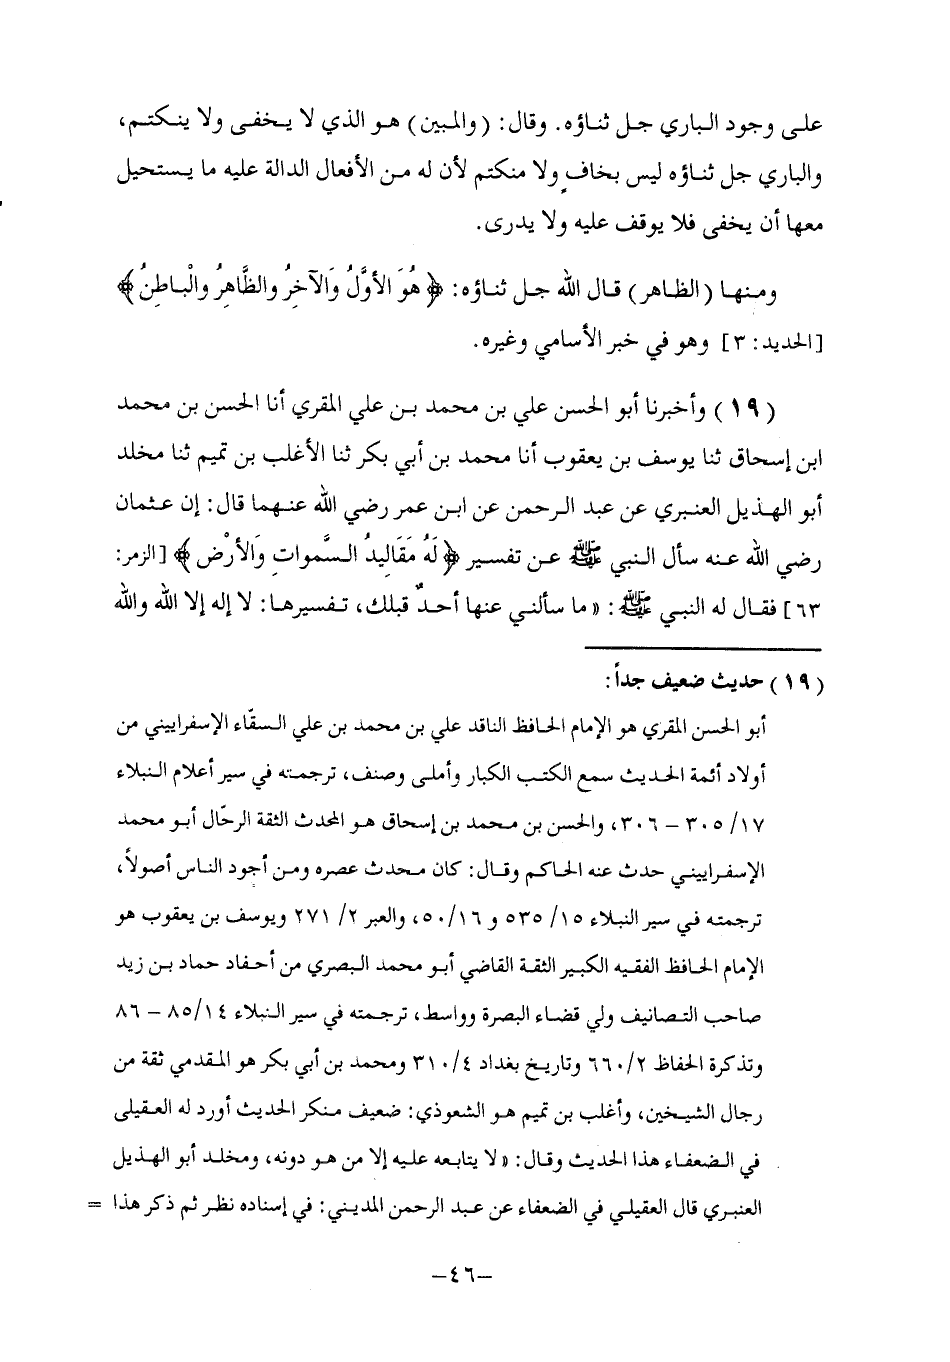 على وجود الباري جل ثناؤه. وقال: (والمبين) هو الذي لا يخفى ولا ينكتم،
والباري جل ثناؤه ليس بخافٍ ولا منكتم لأن له من الأفعال الدالة عليه ما يستحيل
معها أن يخفى فلا يوقف عليه ولا يدرى.
ومنها (الظاهر) قال الله جل ثناؤه: ﴿هُوَ الأوَّلُ وَالآخِرُ والظَّاهِرُ والْبَاطِنُ﴾
[الحديد: ٣] وهو في خبر الأسامي وغيره.
(١٩) وأخبرنا أبو الحسن علي بن محمد بن علي المقري أنا الحسن بن محمد
ابن إسحاق ثنا يوسف بن يعقوب أنا محمد بن أبي بكر ثنا الأغلب بن تميم ثنا مخلد
أبو الهذيل العنبري عن عبد الرحمن عن ابن عمر رضي الله عنهما قال: إن عثمان
رضي الله عنه سأل النبي ﷺ عن تفسير ﴿لَهُ مَقَاليدُ السَّمواتِ وَالأرْضِ﴾ [الزمر:
٦٣] فقال له النبي ﷺ: «ما سألني عنها أحدٌ قبلك، تفسيرها: لا إله إلا الله والله
(١٩) حديث ضعيف جداً:
أبو الحسن المقري هو الإمام الحافظ الناقد علي بن محمد بن علي السقّاء الإسفراييني من
أولاد أئمة الحديث سمع الكتب الكبار وأملى وصنف، ترجمته في سير أعلام النبلاء
١٧/ ٣٠٥ - ٣٠٦، والحسن بن محمد بن إسحاق هو المحدث الثقة الرحّال أبو محمد
الإسفراييني حدث عنه الحاكم وقال: كان محدث عصره ومن أجود الناس أصولاً،
ترجمته في سير النبلاء ١٥/ ٥٣٥ و ١٦/ ٥٠، والعبر ٢/ ٢٧١ ويوسف بن يعقوب هو
الإمام الحافظ الفقيه الكبير الثقة القاضي أبو محمد البصري من أحفاد حماد بن زيد
صاحب التصانيف ولي قضاء البصرة وواسط، ترجمته في سير النبلاء ١٤/ ٨٥ - ٨٦
وتذكرة الحفاظ ٢/ ٦٦٠ وتاريخ بغداد ٤/ ٣١٠ ومحمد بن أبي بكر هو المقدمي ثقة من
رجال الشيخين، وأغلب بن تميم هو الشعوذي: ضعيف منكر الحديث أورد له العقيلي
في الضعفاء هذا الحديث وقال: «لا يتابعه عليه إلا من هو دونه، ومخلد أبو الهذيل
العنبري قال العقيلي في الضعفاء عن عبد الرحمن المديني: في إسناده نظر ثم ذكر هذا =
-٤٦-